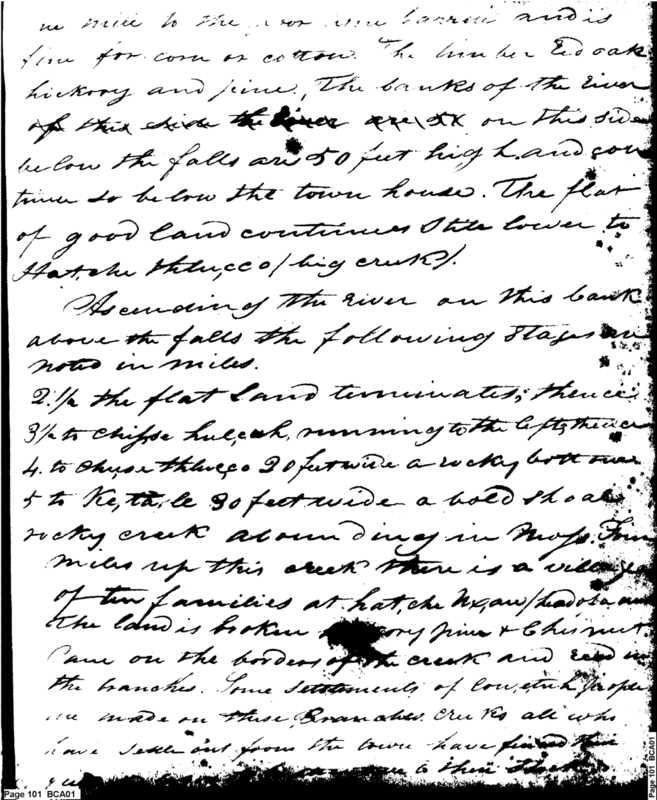 one mile to the poor pine barren and is
fine for corn or cotton. The timber Red oak
hickory and pine, The banks of the River
of this side the River are on this side
below the falls are 50 feet high and con
tinue so below the town house. The flat
of good land continues still lower to
Hat,che thluc,co (big creek).
Ascending the River on this bank
above the falls the following Stages are
noted in miles.
2.1/2 the flat land terminates; thence
3 1/2 to Chusse hul,cuh, running to the left; thence
4. to Chusse thluc,co 20 feet wide a rocky bottom
5 to Ke,ta,le 30 feet wide a bold shoaly
rocky creek abounding in Moss. Four
miles up this creek there is a village
of ten families at hat,che
The land is broken pine & Chesnut.
Cane on the borders of the creek and reed in
the branches. Some settlements of people
are made on these Branches creeks all who
have settled out from the town have
to their
Page 101 BCA01
Page 101 BCA01